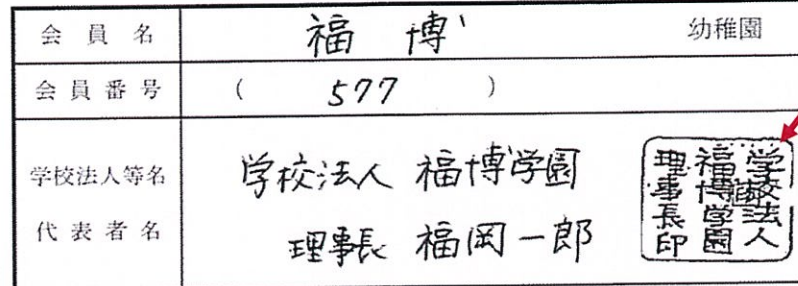 会員名 福博 幼稚園
会員番号 ( 577 )
学校法人等名 学校法人 福博学園
代表者名 理事長 福岡一郎
学校法人
福博学園
理事長印